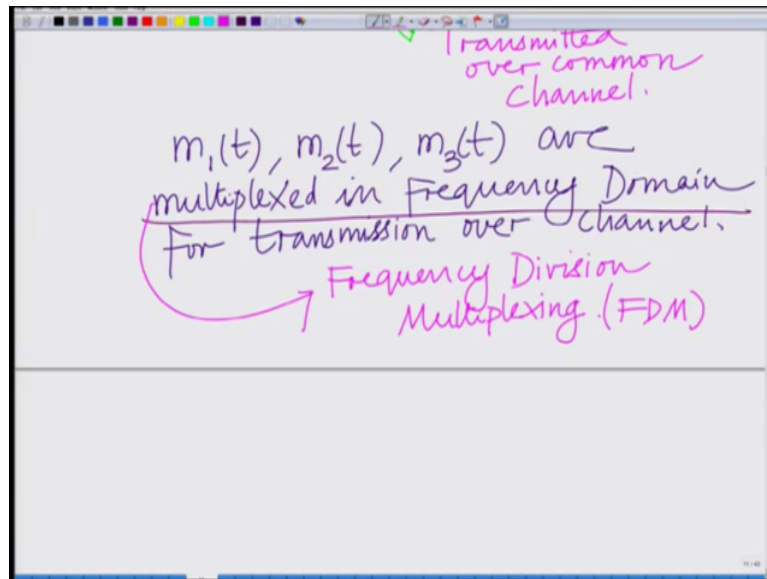 Transmitted
over common
Channel.
m₁(t), m₂(t), m₃(t) are
multiplexed in Frequency Domain
For transmission over channel.
Frequency Division
Multiplexing. (FDM)